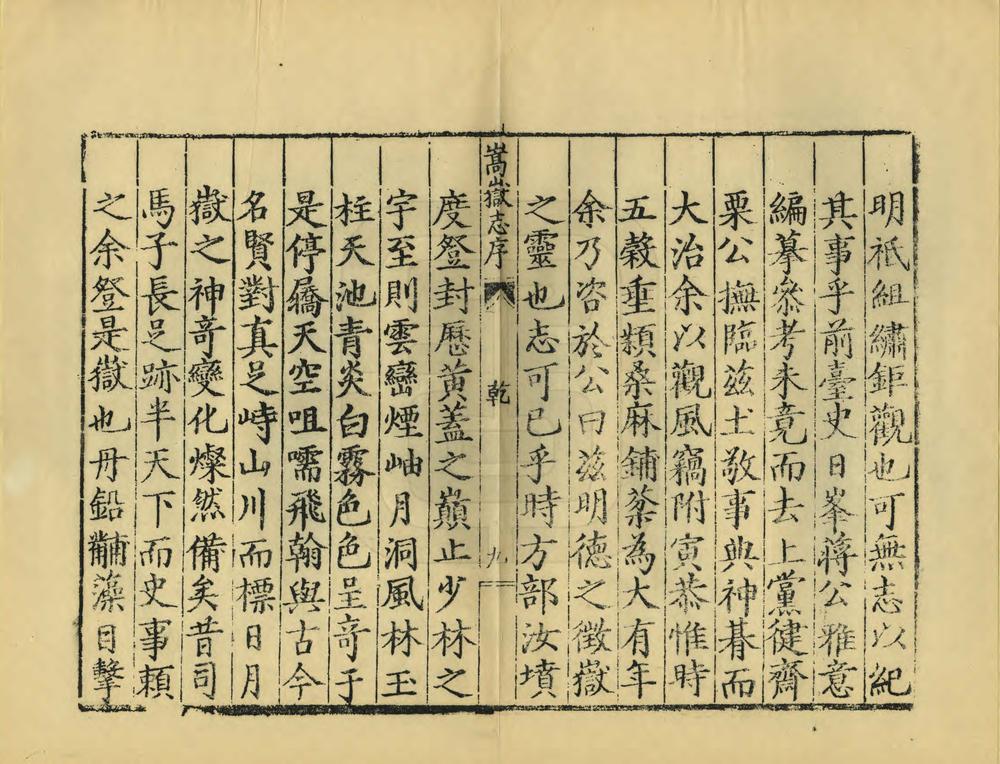 明祇組繡鉅觀也可無志以紀
其事乎前臺史日峯蔣公雅意
編摹叅考未竟而去上黨健齋
栗公撫臨兹土敬事典神碁而
大治余以觀風竊附寅恭惟時
五穀垂類桑麻鋪棻為大有年
余乃咨於公曰兹明德之徵嶽
之靈也志可已乎時方部汝墳
嵩嶽志序
乾
九
度登封歷黄蓋之巔止少林之
宇至則雲巒煙岫月洞風林玉
柱天池青炎白霧色色呈奇于
是停驕天空咀嚅飛翰與古今
名賢對真足峙山川而標日月
嶽之神奇變化燦然備矣昔司
馬子長足跡半天下而史事頼
之余登是嶽也丹鉛黼藻目擊